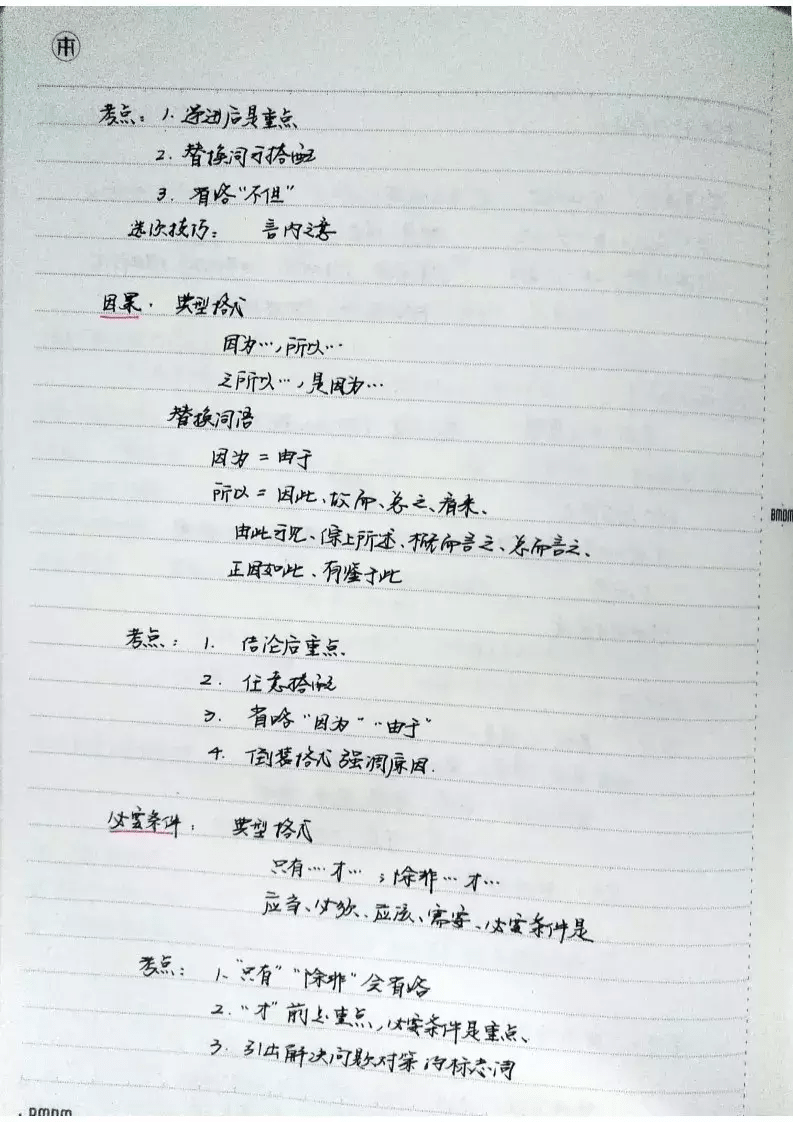 考点：1. 递进后是重点
2. 替换词可搭配
3. 省略“不但”
选项技巧： 言内之意
因果． 典型格式
因为…，所以…
之所以…，是因为…
替换词语
因为 = 由于
所以 = 因此、故而、总之、看来、
由此可见、综上所述、概而言之、总而言之、
正因如此、有鉴于此
考点： 1. 结论后重点．
2. 任意搭配
3. 省略“因为”“由于”
4. 倒装格式 强调原因．
必要条件： 典型格式
只有…才…；除非…才…
应当、必须、应该、需要、必要条件是
考点： 1、“只有”“除非”会省略
2. “才”前是重点，必要条件是重点、
3. 引出解决问题对策的标志词
BMDM
BMDM